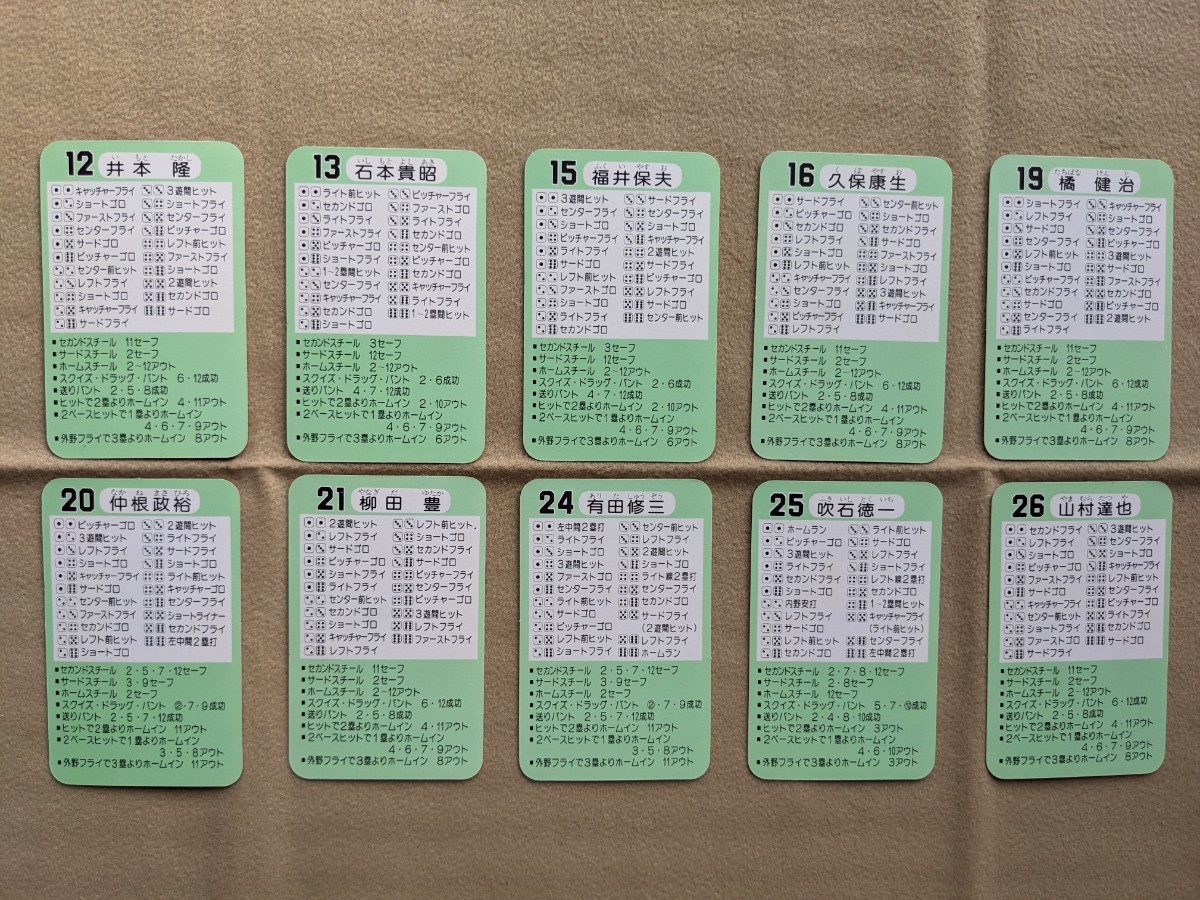 12 井本 隆
い もと たかし
キャッチャーフライ 3遊間ヒット
ショートゴロ ショートフライ
ファーストフライ センターフライ
センターフライ ピッチャーゴロ
サードゴロ レフト前ヒット
ピッチャーゴロ ファーストフライ
センター前ヒット ショートゴロ
レフトフライ 2遊間ヒット
ショートゴロ セカンドゴロ
キャッチャーフライ サードゴロ
サードフライ
■セカンドスチール 11セーフ
■サードスチール 2セーフ
■ホームスチール 2〜12アウト
■スクイズ・ドラッグ・バント 6・12成功
■送りバント 2・5・8成功
■ヒットで2塁よりホームイン 4・11アウト
■2ベースヒットで1塁よりホームイン
4・6・7・9アウト
■外野フライで3塁よりホームイン 8アウト
13 石本貴昭
いし もと よし あき
ライト前ヒット ピッチャーフライ
セカンドゴロ ファーストゴロ
ライトフライ ライトフライ
ファーストフライ セカンドゴロ
ピッチャーゴロ センター前ヒット
ショートフライ ピッチャーゴロ
1〜2塁間ヒット セカンドゴロ
センターフライ キャッチャーフライ
キャッチャーフライ ライトフライ
セカンドゴロ 1〜2塁間ヒット
ショートゴロ
■セカンドスチール 3セーフ
■サードスチール 12セーフ
■ホームスチール 2〜12アウト
■スクイズ・ドラッグ・バント 2・6成功
■送りバント 4・7・12成功
■ヒットで2塁よりホームイン 2・10アウト
■2ベースヒットで1塁よりホームイン
4・6・7・9アウト
■外野フライで3塁よりホームイン 6アウト
15 福井保夫
ふく い やす お
3遊間ヒット サードフライ
センターフライ センターフライ
ショートゴロ ショートゴロ
ピッチャーフライ キャッチャーフライ
ライトフライ 2遊間ヒット
サードゴロ サードフライ
レフト前ヒット ピッチャーゴロ
ファーストゴロ レフトフライ
ショートゴロ サードゴロ
ライトフライ センター前ヒット
セカンドゴロ
■セカンドスチール 3セーフ
■サードスチール 12セーフ
■ホームスチール 2〜12アウト
■スクイズ・ドラッグ・バント 2・6成功
■送りバント 4・7・12成功
■ヒットで2塁よりホームイン 2・10アウト
■2ベースヒットで1塁よりホームイン
4・6・7・9アウト
■外野フライで3塁よりホームイン 6アウト
16 久保康生
く ぼ やす お
サードフライ センター前ヒット
ピッチャーゴロ ショートゴロ
セカンドゴロ セカンドフライ
レフトフライ サードゴロ
ショートゴロ ファーストフライ
レフト前ヒット ショートフライ
キャッチャーフライ センターフライ
センターフライ 3遊間ヒット
ショートゴロ キャッチャーフライ
ピッチャーフライ サードゴロ
レフトフライ
■セカンドスチール 11セーフ
■サードスチール 2セーフ
■ホームスチール 2〜12アウト
■スクイズ・ドラッグ・バント 6・12成功
■送りバント 2・5・8成功
■ヒットで2塁よりホームイン 4・11アウト
■2ベースヒットで1塁よりホームイン
4・6・7・9アウト
■外野フライで3塁よりホームイン 8アウト
19 橘 健治
たちばな けん じ
ショートフライ キャッチャーフライ
レフトフライ ショートゴロ
サードゴロ センターフライ
センターフライ ピッチャーゴロ
レフト前ヒット 3遊間ヒット
ショートゴロ サードフライ
ピッチャーフライ ファーストフライ
セカンドフライ ショートゴロ
サードゴロ ピッチャーゴロ
センター前ヒット 2遊間ヒット
ライトフライ
■セカンドスチール 11セーフ
■サードスチール 2セーフ
■ホームスチール 2〜12アウト
■スクイズ・ドラッグ・バント 6・12成功
■送りバント 2・5・8成功
■ヒットで2塁よりホームイン 4・11アウト
■2ベースヒットで1塁よりホームイン
4・6・7・9アウト
■外野フライで3塁よりホームイン 8アウト
20 仲根政裕
なか ね まさ ひろ
ピッチャーゴロ 2遊間ヒット
3遊間ヒット ライトフライ
レフトフライ サードフライ
ショートゴロ ショートゴロ
キャッチャーフライ ライト前ヒット
サードゴロ キャッチャーゴロ
センター前ヒット センターフライ
ファーストフライ ショートライナー
セカンドゴロ セカンドフライ
レフト前ヒット 左中間2塁打
ショートゴロ
■セカンドスチール 2・5・7・12セーフ
■サードスチール 3・9セーフ
■ホームスチール 2セーフ
■スクイズ・ドラッグ・バント ②・7・9成功
■送りバント 2・5・7・12成功
■ヒットで2塁よりホームイン 11アウト
■2ベースヒットで1塁よりホームイン
3・5・8アウト
■外野フライで3塁よりホームイン 11アウト
21 柳田 豊
やなぎ だ ゆたか
2遊間ヒット レフト前ヒット
レフトフライ ショートゴロ
サードゴロ セカンドフライ
ピッチャーゴロ サードゴロ
ショートフライ ピッチャーフライ
ライトフライ センターフライ
センター前ヒット ピッチャーゴロ
セカンドゴロ 3遊間ヒット
ショートゴロ レフトフライ
キャッチャーフライ ファーストフライ
レフトフライ
■セカンドスチール 11セーフ
■サードスチール 2セーフ
■ホームスチール 2〜12アウト
■スクイズ・ドラッグ・バント 6・12成功
■送りバント 2・5・8成功
■ヒットで2塁よりホームイン 4・11アウト
■2ベースヒットで1塁よりホームイン
4・6・7・9アウト
■外野フライで3塁よりホームイン 8アウト
24 有田修三
あり た しゅう ぞう
左中間2塁打 センター前ヒット
ライトフライ レフトフライ
ショートゴロ 2遊間ヒット
3遊間ヒット ショートゴロ
ファーストゴロ ライト線2塁打
センターフライ センターフライ
ライト前ヒット セカンドゴロ
サードゴロ サードフライ
ピッチャーゴロ (2遊間ヒット)
レフト前ヒット レフトフライ
ショートフライ ホームラン
■セカンドスチール 2・5・7・12セーフ
■サードスチール 3・9セーフ
■ホームスチール 2セーフ
■スクイズ・ドラッグ・バント ②・7・9成功
■送りバント 2・5・7・12成功
■ヒットで2塁よりホームイン 11アウト
■2ベースヒットで1塁よりホームイン
3・5・8アウト
■外野フライで3塁よりホームイン 11アウト
25 吹石徳一
ふき いし とく いち
ホームラン ライト前ヒット
ピッチャーゴロ ショートゴロ
3遊間ヒット レフトフライ
ライトフライ ショートゴロ
セカンドフライ レフト線2塁打
ショートゴロ サードフライ
内野安打 1〜2塁間ヒット
レフトフライ キャッチャーフライ
サードゴロ (ライト前ヒット)
レフト前ヒット センターフライ
セカンドゴロ 左中間2塁打
■セカンドスチール 2・7・8・12セーフ
■サードスチール 2・8セーフ
■ホームスチール 12セーフ
■スクイズ・ドラッグ・バント 5・7・⑩成功
■送りバント 2・4・8・10成功
■ヒットで2塁よりホームイン 3アウト
■2ベースヒットで1塁よりホームイン
4・6・10アウト
■外野フライで3塁よりホームイン 3アウト
26 山村達也
やま むら たつ や
セカンドフライ 3遊間ヒット
レフトフライ センターフライ
ショートゴロ ショートゴロ
ピッチャーゴロ キャッチャーフライ
ファーストフライ レフト前ヒット
サードゴロ センターフライ
キャッチャーフライ ピッチャーゴロ
センター前ヒット レフトフライ
ショートフライ ショートゴロ
ファーストゴロ サードゴロ
サードフライ
■セカンドスチール 11セーフ
■サードスチール 2セーフ
■ホームスチール 2〜12アウト
■スクイズ・ドラッグ・バント 6・12成功
■送りバント 2・5・8成功
■ヒットで2塁よりホームイン 4・11アウト
■2ベースヒットで1塁よりホームイン
4・6・7・9アウト
■外野フライで3塁よりホームイン 8アウト